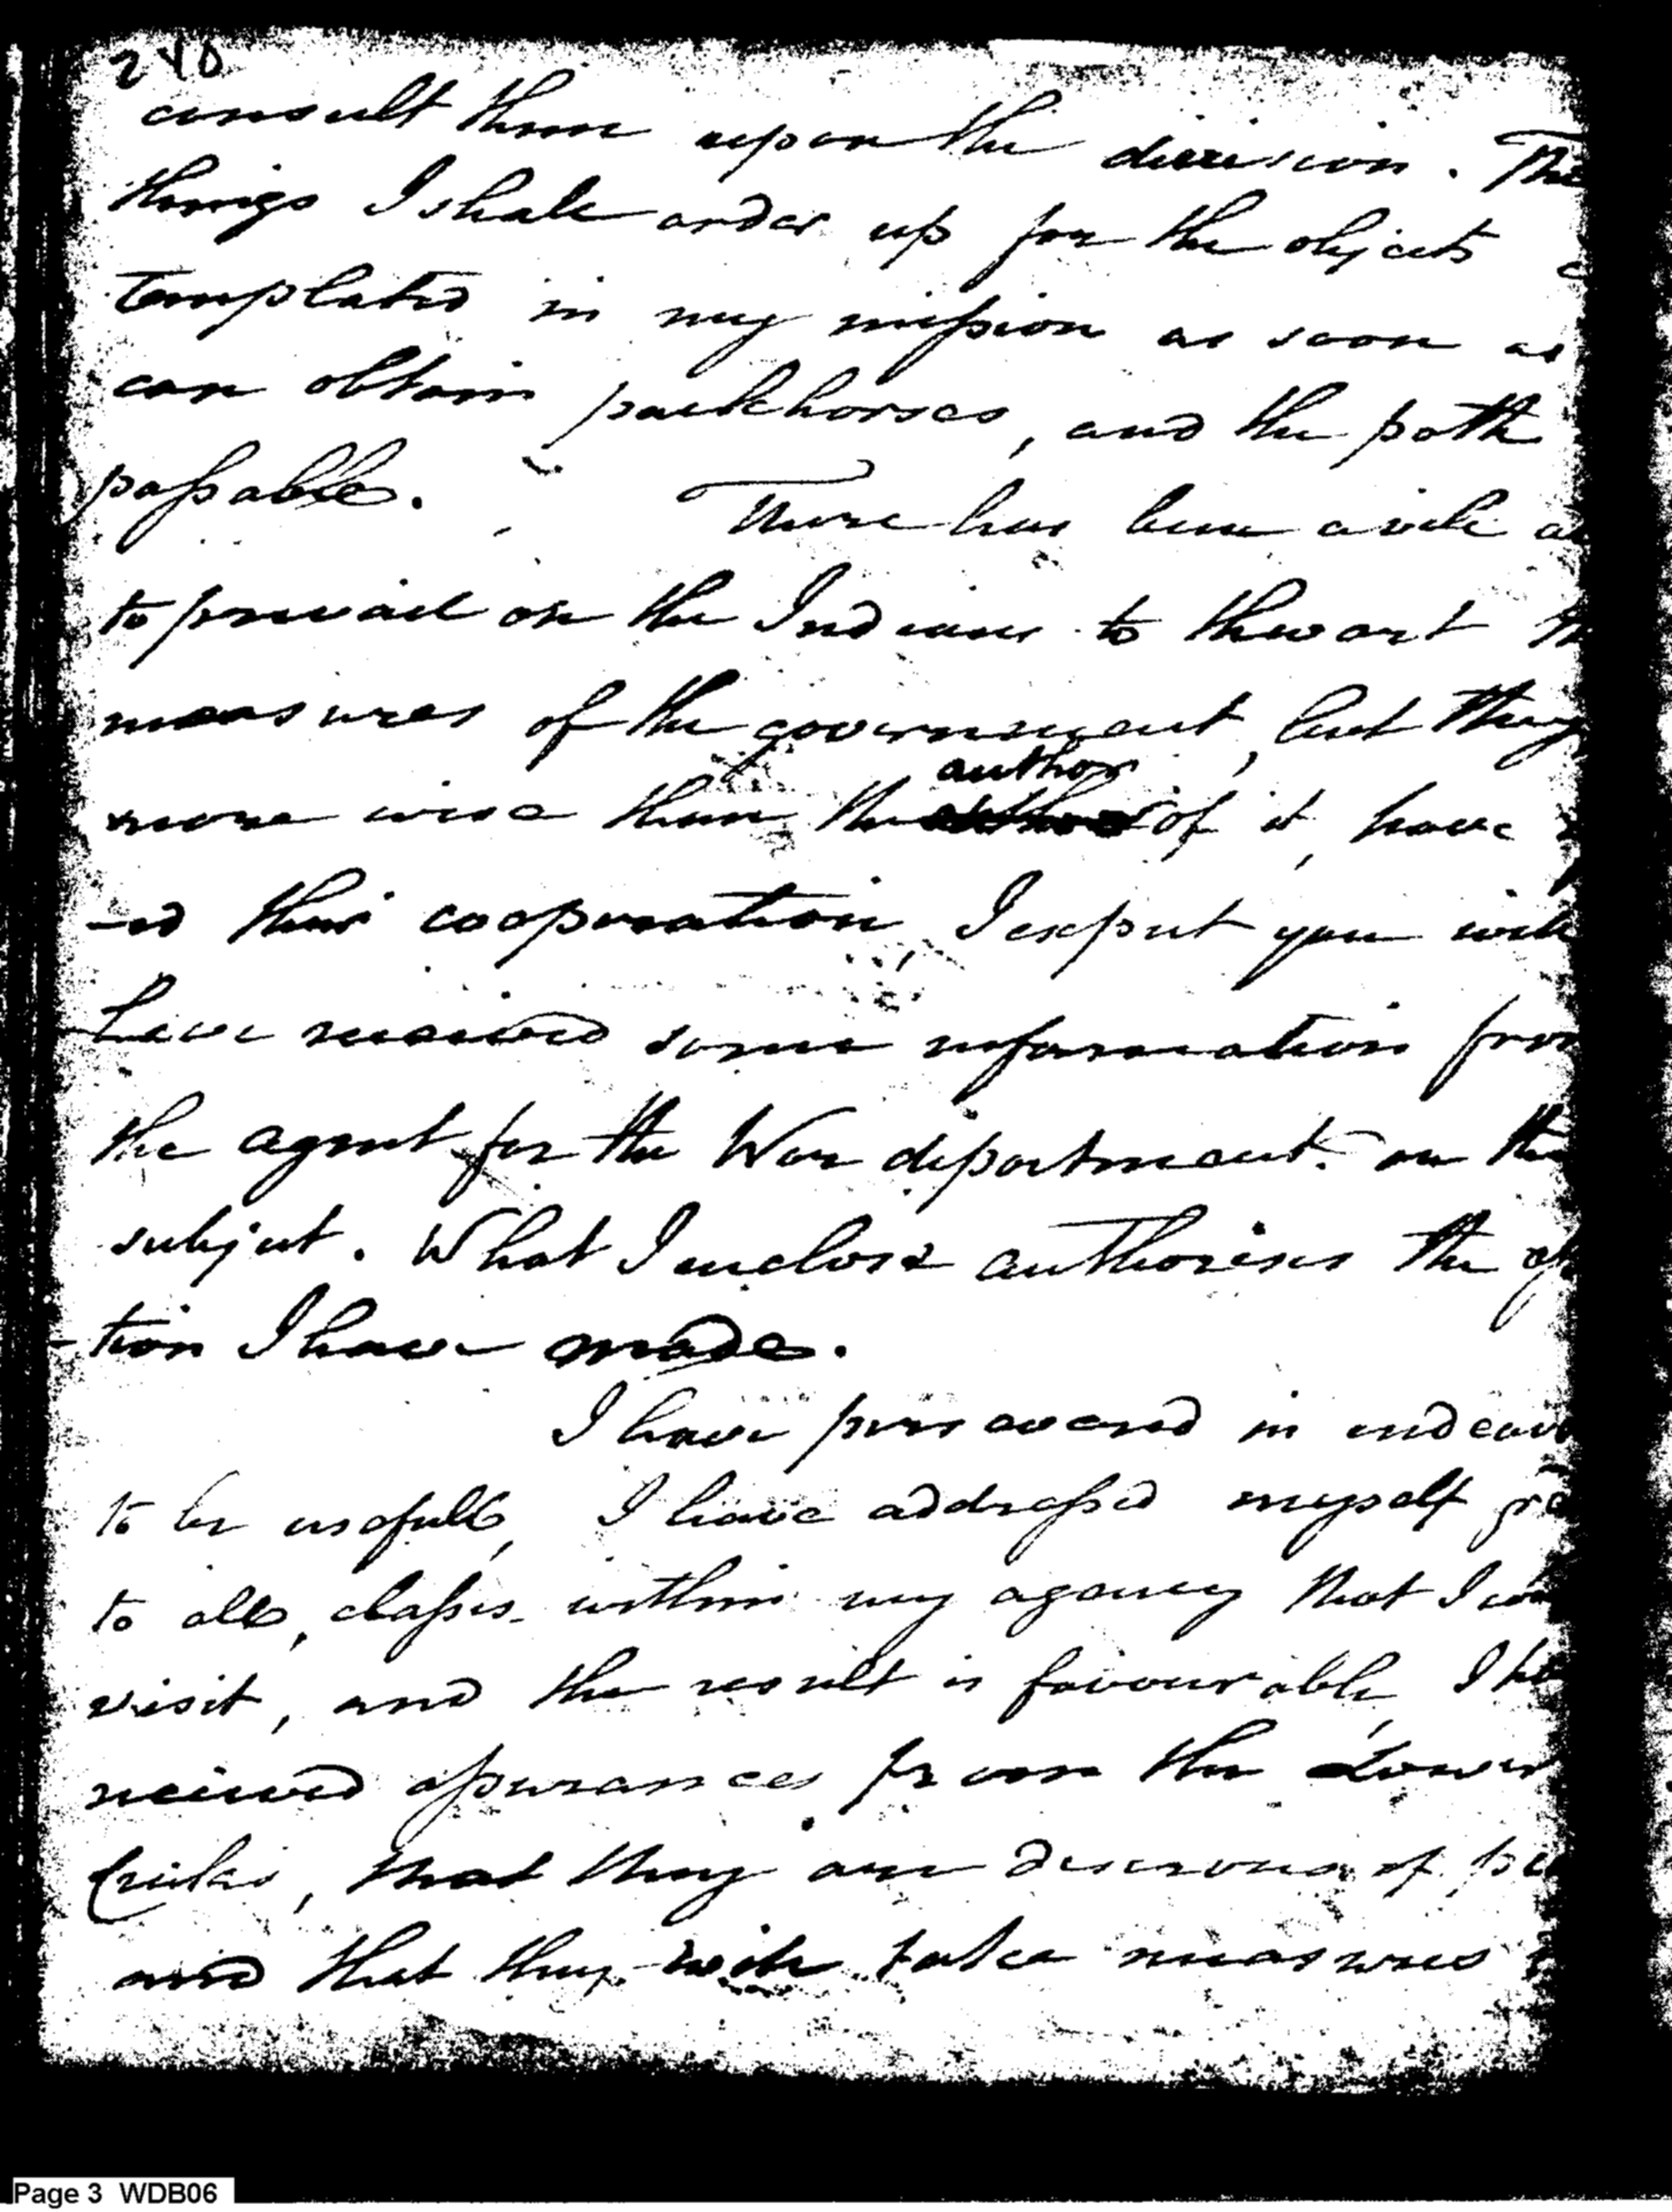 240
consult them upon the division. The
things I shall order up for the objects
templated in my mission as soon as
can obtain packhorses, and the path
passable. There has been a vile
to prevail on the Indians to thwart
measures of the government, but they
author
more wise than the of it, have
-ed their cooperation, I expect you will
have received some information from
the agent for the War department. on the
subject. What I enclose authorises the
-tion I have made.
I have persevered in endeav
to be usefull, I have addressed myself
to all, classes within my agency that I
visit, and the result is favourable, I
received assurances from the Lower
Creeks, that they are desirous of
and that they will take measures
Page 3 WDB06